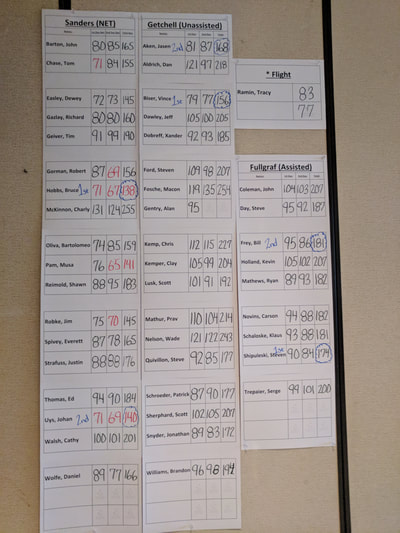 Sanders (NET)
Barton, John 80 85 165
Chase, Tom 71 84 155
Easley, Dewey 72 73 145
Gazlay, Richard 80 80 160
Geiver, Tim 91 99 190
Gorman, Robert 87 69 156
Hobbs, Bruce 1st 71 67 138
McKinnon, Charly 131 124 255
Oliva, Bartolomeo 74 85 159
Pam, Musa 76 65 141
Reimold, Shawn 88 95 183
Robke, Jim 75 70 145
Spivey, Everett 87 78 165
Strafuss, Justin 88 88 176
Thomas, Ed 94 90 184
Uys, Johan 2nd 71 69 140
Walsh, Cathy 100 101 201
Wolfe, Daniel 89 77 166
Getchell (Unassisted)
Aken, Jasen 2nd 81 87 168
Aldrich, Dan 121 97 218
Biser, Vince 1st 79 77 156
Dawley, Jeff 105 100 205
Dobreff, Xander 92 93 185
Ford, Steven 109 98 207
Fosche, Macon 119 135 254
Gentry, Alan 95
Kemp, Chris 112 115 227
Kemper, Clay 105 99 204
Lusk, Scott 101 91 192
Mathur, Prav 110 104 214
Nelson, Wade 121 122 243
Quivillon, Steve 92 85 177
Schroeder, Patrick 87 90 177
Sherphard, Scott 102 105 207
Snyder, Jonathan 89 83 172
Williams, Brandon 96 98 194
* Flight
Ramin, Tracy 83
77
Fullgraf (Assisted)
Coleman, John 104 103 207
Day, Steve 95 92 187
Frey, Bill 2nd 95 86 181
Holland, Kevin 105 102 207
Mathews, Ryan 89 93 182
Nevins, Carson 94 88 182
Schaloske, Klaus 93 88 181
Shipuleski, Steven 1st 90 84 174
Trepaier, Serge 99 101 200